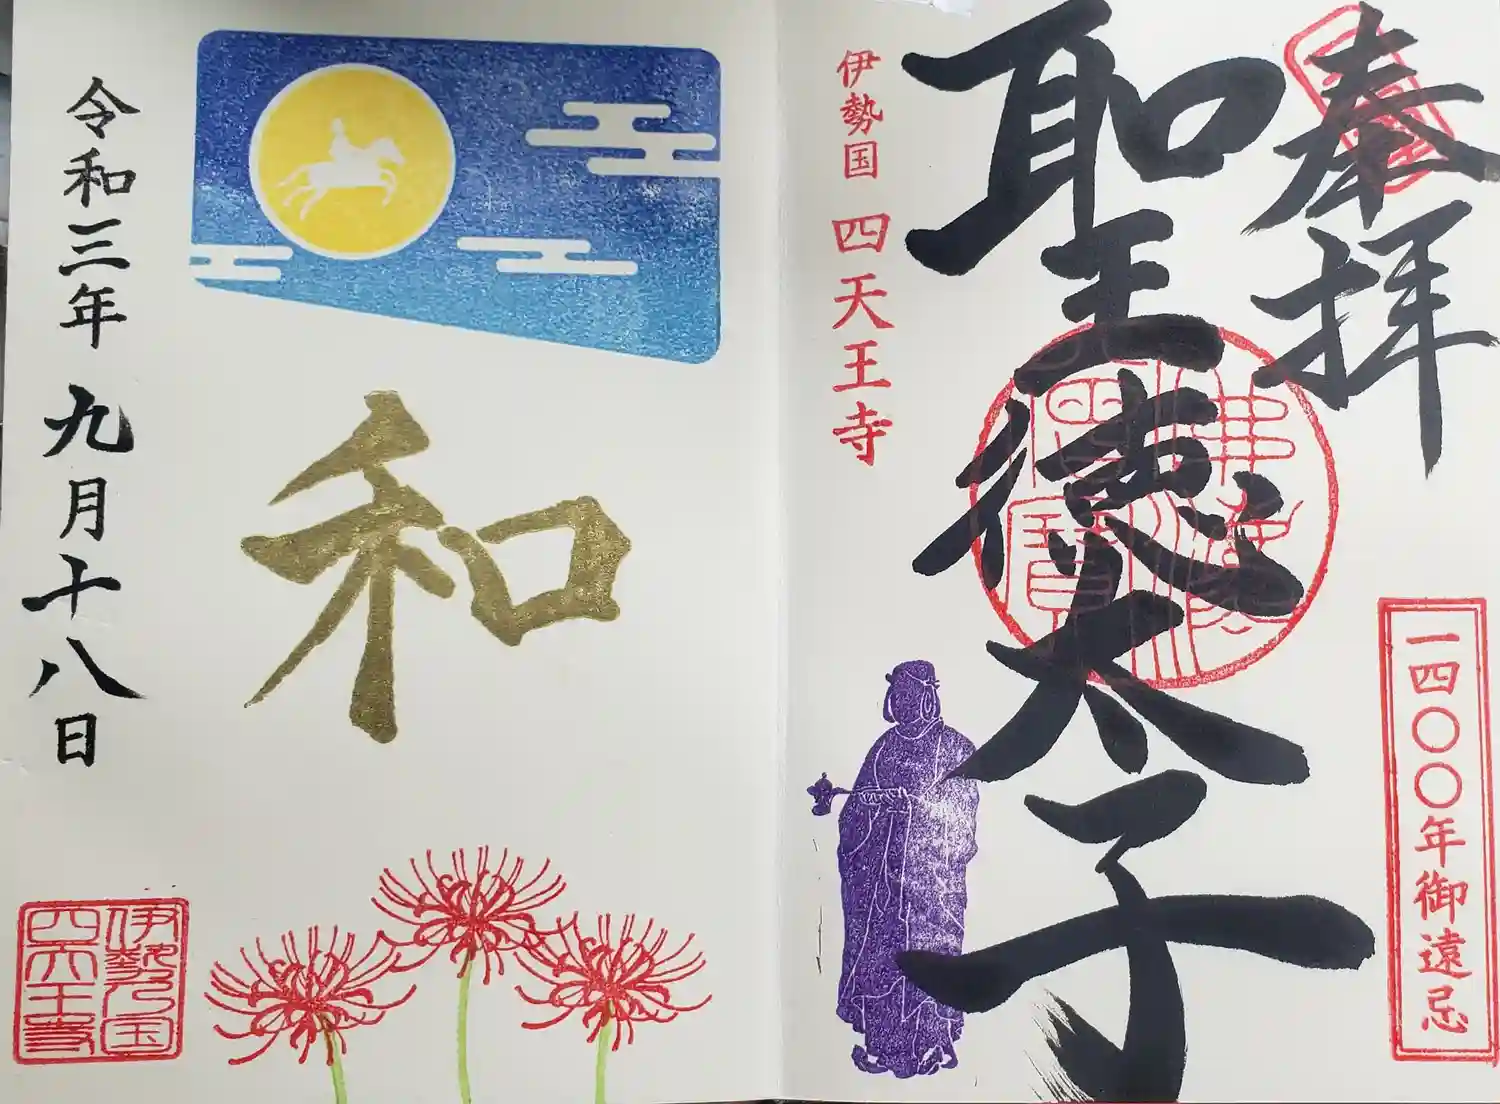 奉拝
一四〇〇年御遠忌
聖徳太子
佛法僧寶
伊勢国 四天王寺
和
令和三年 九月十八日
伊勢乃国
四天王寺